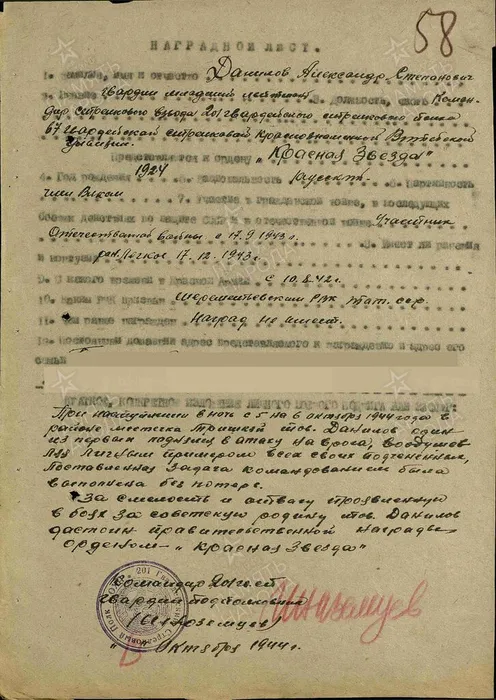 58
НАГРАДНОЙ ЛИСТ.
1. Фамилия, имя и отчество Данилов Александр Степанович
2. Звание гвардии младший лейтенант 3. Должность, часть Коман-
дир стрелкового взвода 201 гвардейского стрелкового полка
67 гвардейской стрелковой Краснознаменной Витебской
дивизии.
Представляется к ордену „Красная Звезда"
4. Год рождения 1924 5. Национальность русский 6. Партийность
член ВЛКСМ 7. Участие в гражданской войне, в последующих
боевых действиях по защите СССР и в отечественной войне Участник
Отечественной войны с 17.9.1943 г.
8. Имеет ли ранения
и контузии ран. легкое 17.12.1943 г.
9. С какого времени в Красной Армии с 10.8.42 г.
10. Каким РВК призван Шереметьевским РВК тат. сср.
11. Чем ранее награжден Наград не имеет.
12. Постоянный домашний адрес представляемого к награждению и адрес его
семьи
КРАТКОЕ, КОНКРЕТНОЕ ИЗЛОЖЕНИЕ ЛИЧНОГО БОЕВОГО ПОДВИГА ИЛИ ЗАСЛУГ:
При наступлении в ночь с 5 на 6 октября 1944 года в
районе местечка Тришкий тов. Данилов один
из первых поднялся в атаку на врага, воодушев
ляя личным примером всех своих подчененных,
Поставленная задача командованием была
выполнена без потерь.
За смелость и отвагу проявленную
в боях за советскую родину тов. Данилов
достоин правительственной награды
орденом „Красная Звезда"
Командир 201 гв. сп
гвардии подполковник
" Октября 1944 г.
201 Гвард. Стрелковый Полк